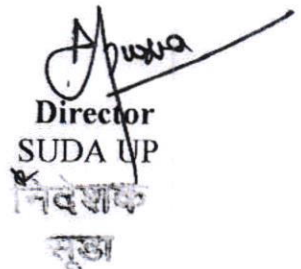 Director
SUDA UP
निदेशक
सूडा